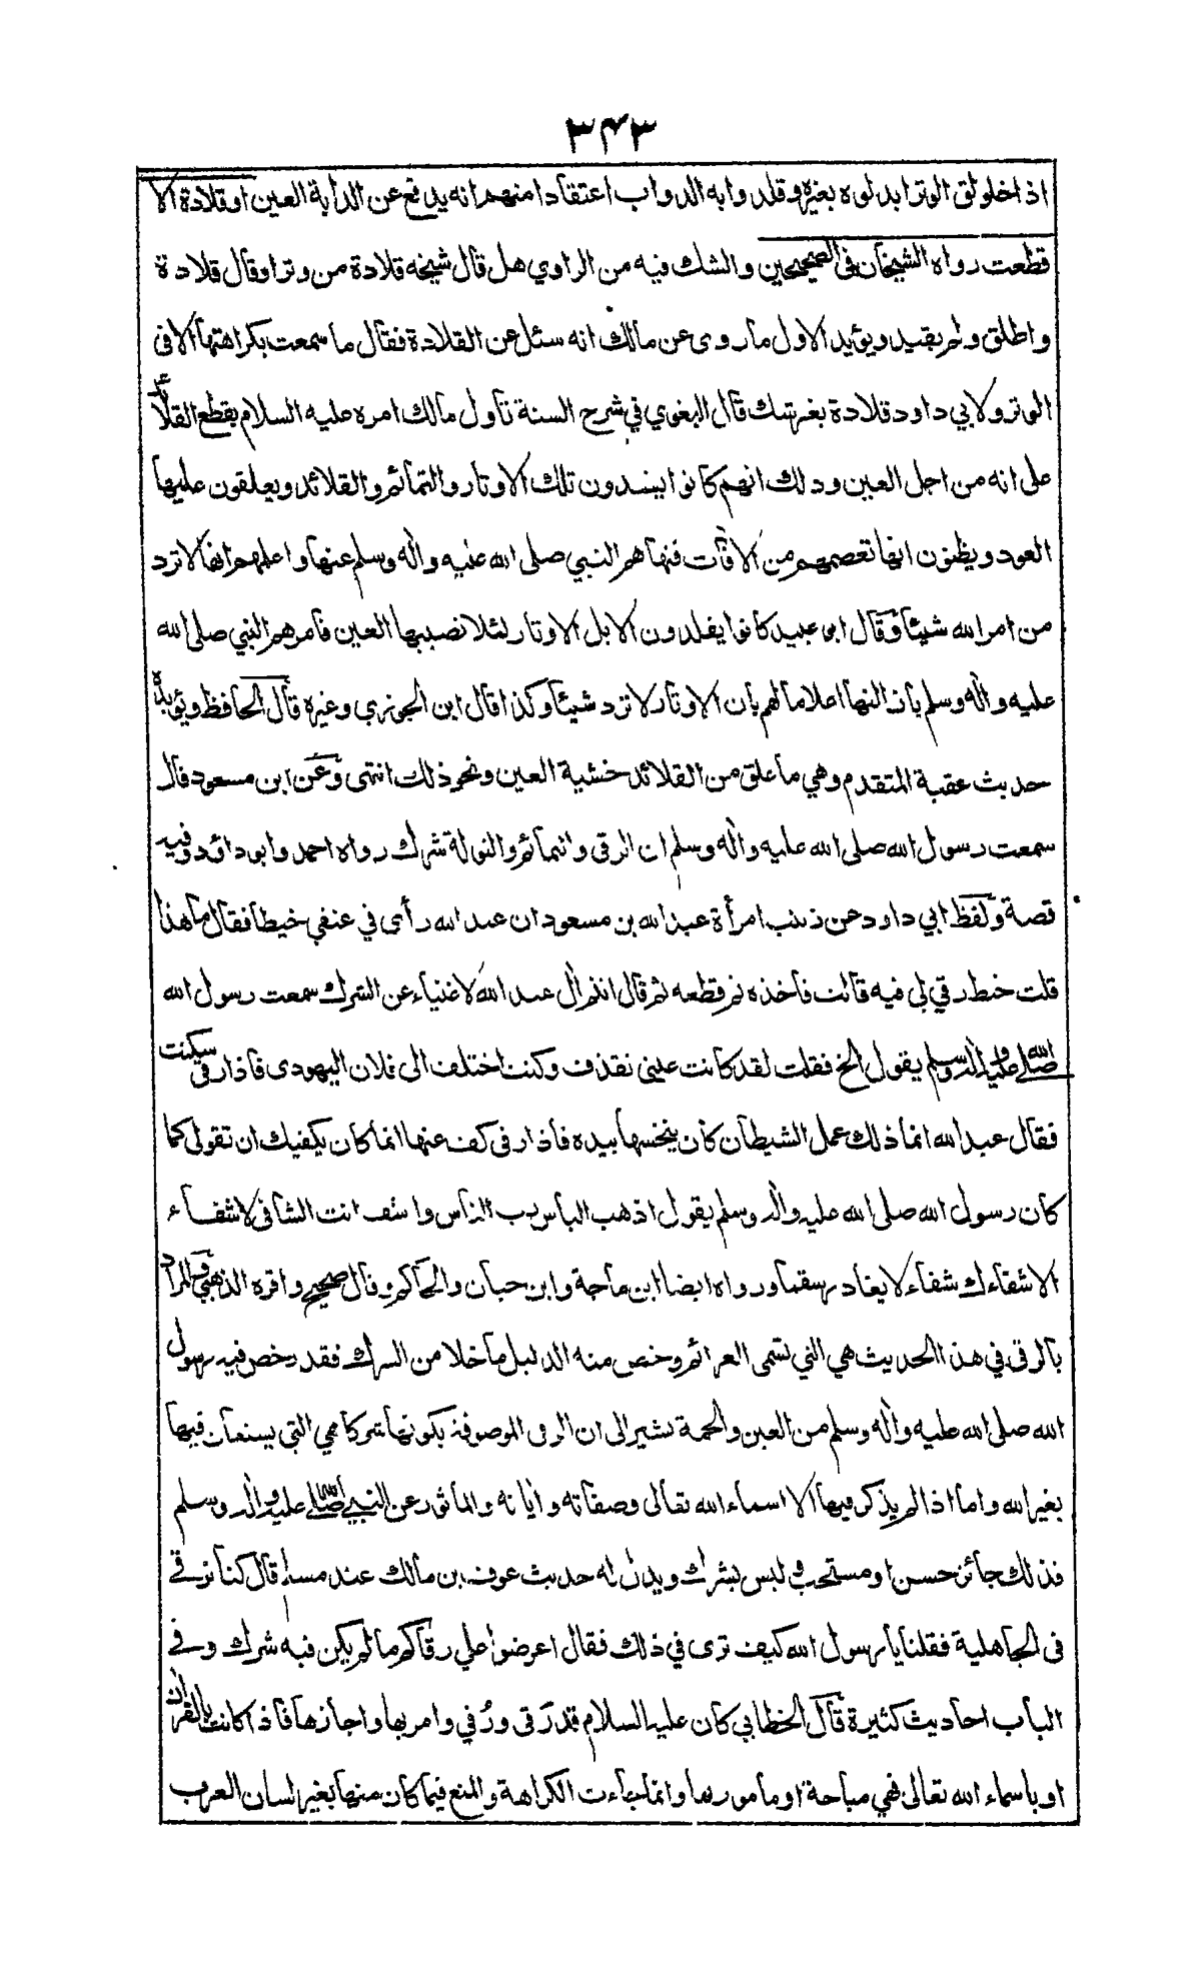 ۳۴۳
اذا خلولق الوتر ابدلوه بغيره وقلدوا به الدواب اعتقادا منهم انه يدفع عن الدابة العين او قلادة الا
قطعت رواه الشيخان فى الصحيحين والشك فيه من الراوي هل قال شيخه قلادة من وتر او قال قلادة
واطلق ولم يقيد ويؤيد الاول ما روى عن مالك انه سئل عن القلادة فقال ما سمعت بكراهتها الا فى
الوتر ولابي داود قلادة بغير شك قال البغوي في شرح السنة تأول مالك امره عليه السلام بقطع القلائد
على انه من اجل العين وذلك انهم كانوا يشدون تلك الاوتار والتمائم والقلائد ويعلقون عليها
العوذ ويظنون انها تعصمهم من الآفات فنهاهم النبي صلى الله عليه وآله وسلم عنها واعلمهم انها لا ترد
من امر الله شيئا وقال ابو عبيد كانوا يقلدون الابل الاوتار لئلا تصيبها العين فأمرهم النبي صلى الله
عليه وآله وسلم بازالتها اعلاما لهم بأن الاوتار لا ترد شيئا وكذا قال ابن الجوزي وغيره قال الحافظ ويؤيده
حديث عقبة المتقدم وهي ما علق من القلائد خشية العين ونحو ذلك انتهى وعن ابن مسعود قال
سمعت رسول الله صلى الله عليه وآله وسلم ان الرقى والتمائم والتولة شرك رواه احمد وابو دائد وفيه
قصة ولفظ ابي داود عن زينب امرأة عبد الله بن مسعود ان عبد الله رأى في عنقي خيطا فقال ما هذا
قلت خيط رقي لي فيه قالت فأخذه ثم قطعه ثم قال انتم آل عبد الله لاغنياء عن الشرك سمعت رسول الله
صلى الله عليه وآله وسلم يقول الخ فقلت لقد كانت عيني تقذف وكنت اختلف الى فلان اليهودى فاذا رقى سكنت
فقال عبد الله انما ذلك عمل الشيطان كان ينخسها بيده فاذا رقى كف عنها انما كان يكفيك ان تقولى كما
كان رسول الله صلى الله عليه وآله وسلم يقول اذهب البأس رب الناس واشف انت الشافى لا شفاء
الا شفاءك شفاء لا يغادر سقما ورواه ايضا ابن ماجة وابن حبان والحاكم وقال صحيح واقره الذهبي والمراد
بالرقى في هذا الحديث هي التي تسمى العزائم وخص منه الدليل ما خلا من الشرك فقد رخص فيه رسول
الله صلى الله عليه وآله وسلم من العين والحمة تشير الى ان الرقى الموصوفة بكونها شركا هي التي يستعان فيها
بغير الله واما اذا لم يذكر فيها الا اسماء الله تعالى وصفاته واياته والماثور عن النبي صلى الله عليه وآله وسلم
فذلك جائز حسن او مستحب وليس بشرك ويدل له حديث عوف بن مالك عند مسلم قال كنا نرقي
فى الجاهلية فقلنا يا رسول الله كيف ترى في ذلك فقال اعرضوا علي رقاكم ما لم يكن فيه شرك وفي
الباب احاديث كثيرة قال الخطابي كان عليه السلام قد رَقى ورُقي وامر بها واجازها فاذا كانت بالقرآن
او باسماء الله تعالى فهي مباحة او مأمور بها وانما جاءت الكراهة والمنع فيما كان منها بغير لسان العرب